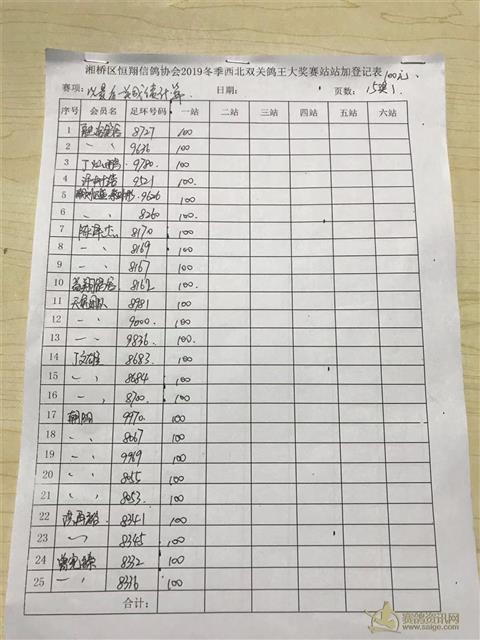 湘桥区恒翔信鸽协会2019冬季西北双关鸽王大奖赛站站加登记表 100元
赛项: 以最后关成绩计算 日期: 页数: 15奖1
序号 会员名 足环号码 一站 二站 三站 四站 五站 六站
1 8727 100
2 〃 9636 100
3 丁灿鹏 9780 100
4 9521 100
5 9626 100
6 〃 8260 100
7 陈泽杰 8170 100
8 〃 8169 100
9 〃 8167 100
10 益翔鸽舍 8162 100
11 天骄团队 8981 100
12 〃 9000 100
13 〃 9836 100
14 丁文雄 8683 100
15 〃 8684 100
16 〃 8700 100
17 9970 100
18 〃 8067 100
19 〃 9969 100
20 〃 8055 100
21 〃 8053 100
22 8341 100
23 〃 8345 100
24 8332 100
25 〃 8336 100
合计:
赛鸽资讯网
www.saige.com